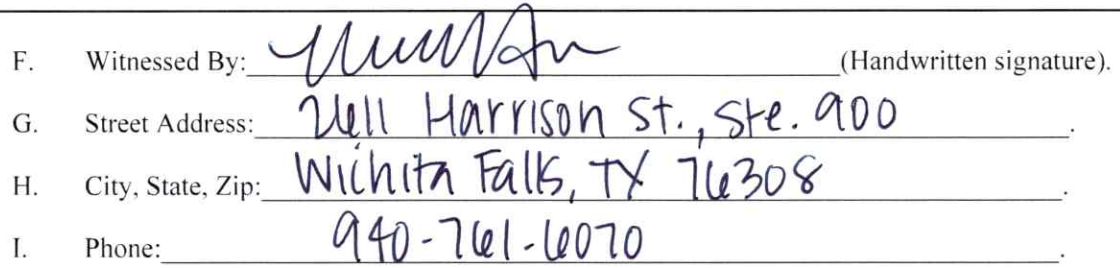 F. Witnessed By: (Handwritten signature).
G. Street Address: 2611 Harrison St., Ste. 900.
H. City, State, Zip: Wichita Falls, TX 76308.
I. Phone: 940-761-6070.